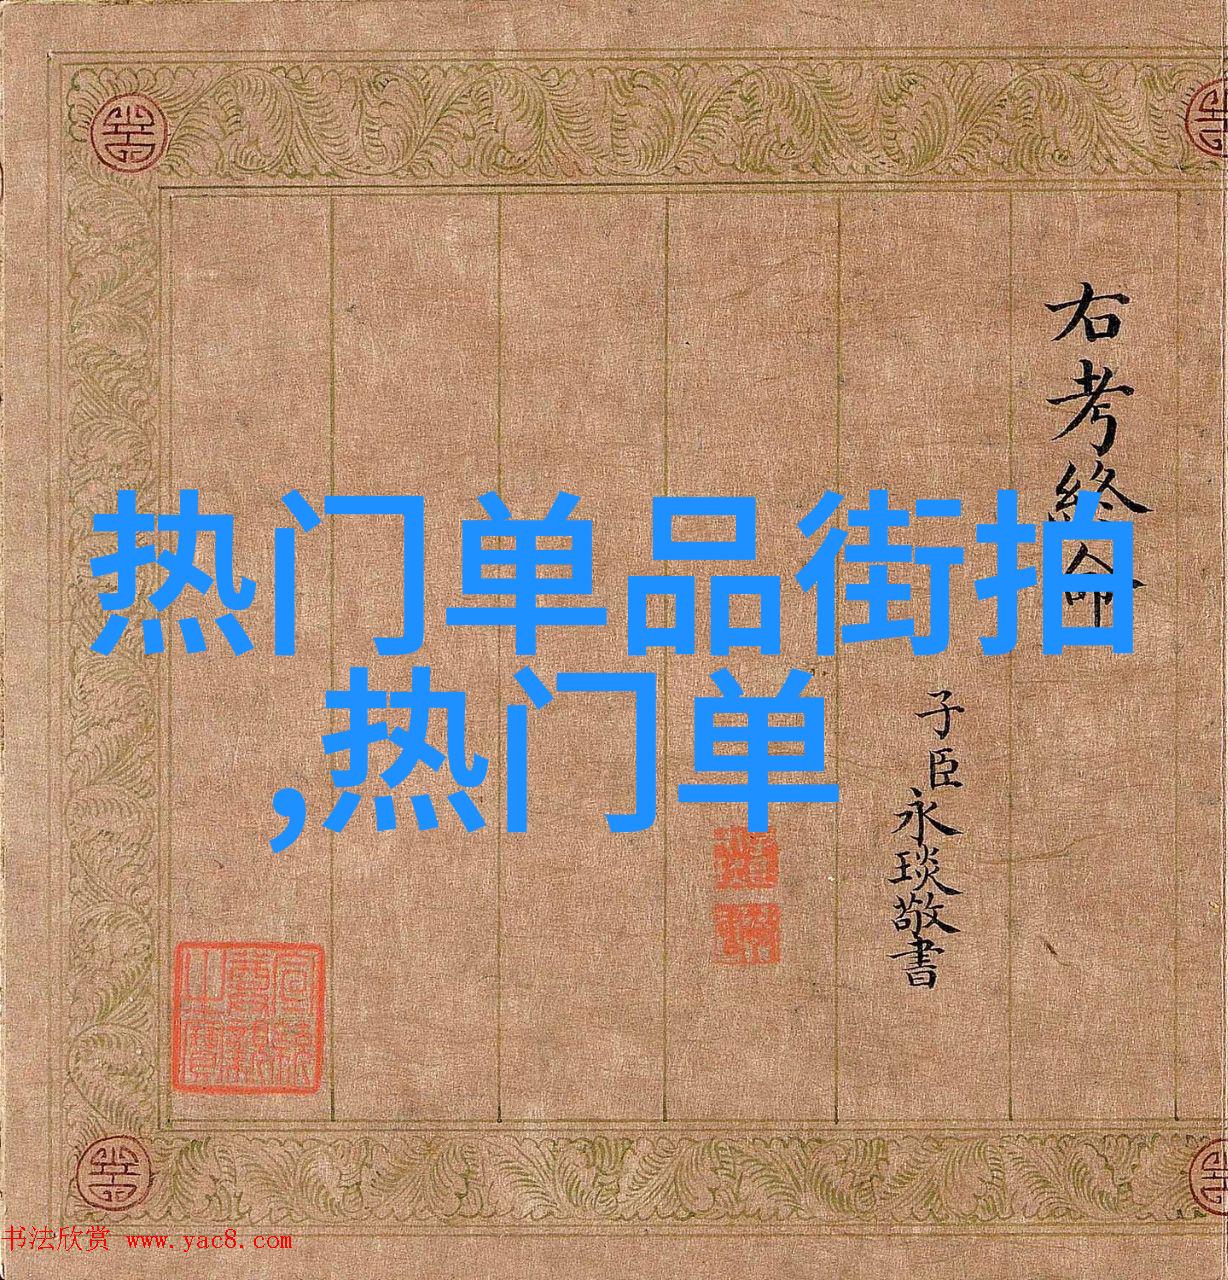 热门单品街拍
,热门单
右考终命
子臣永琰敬書
书法欣赏 www.yac8.com